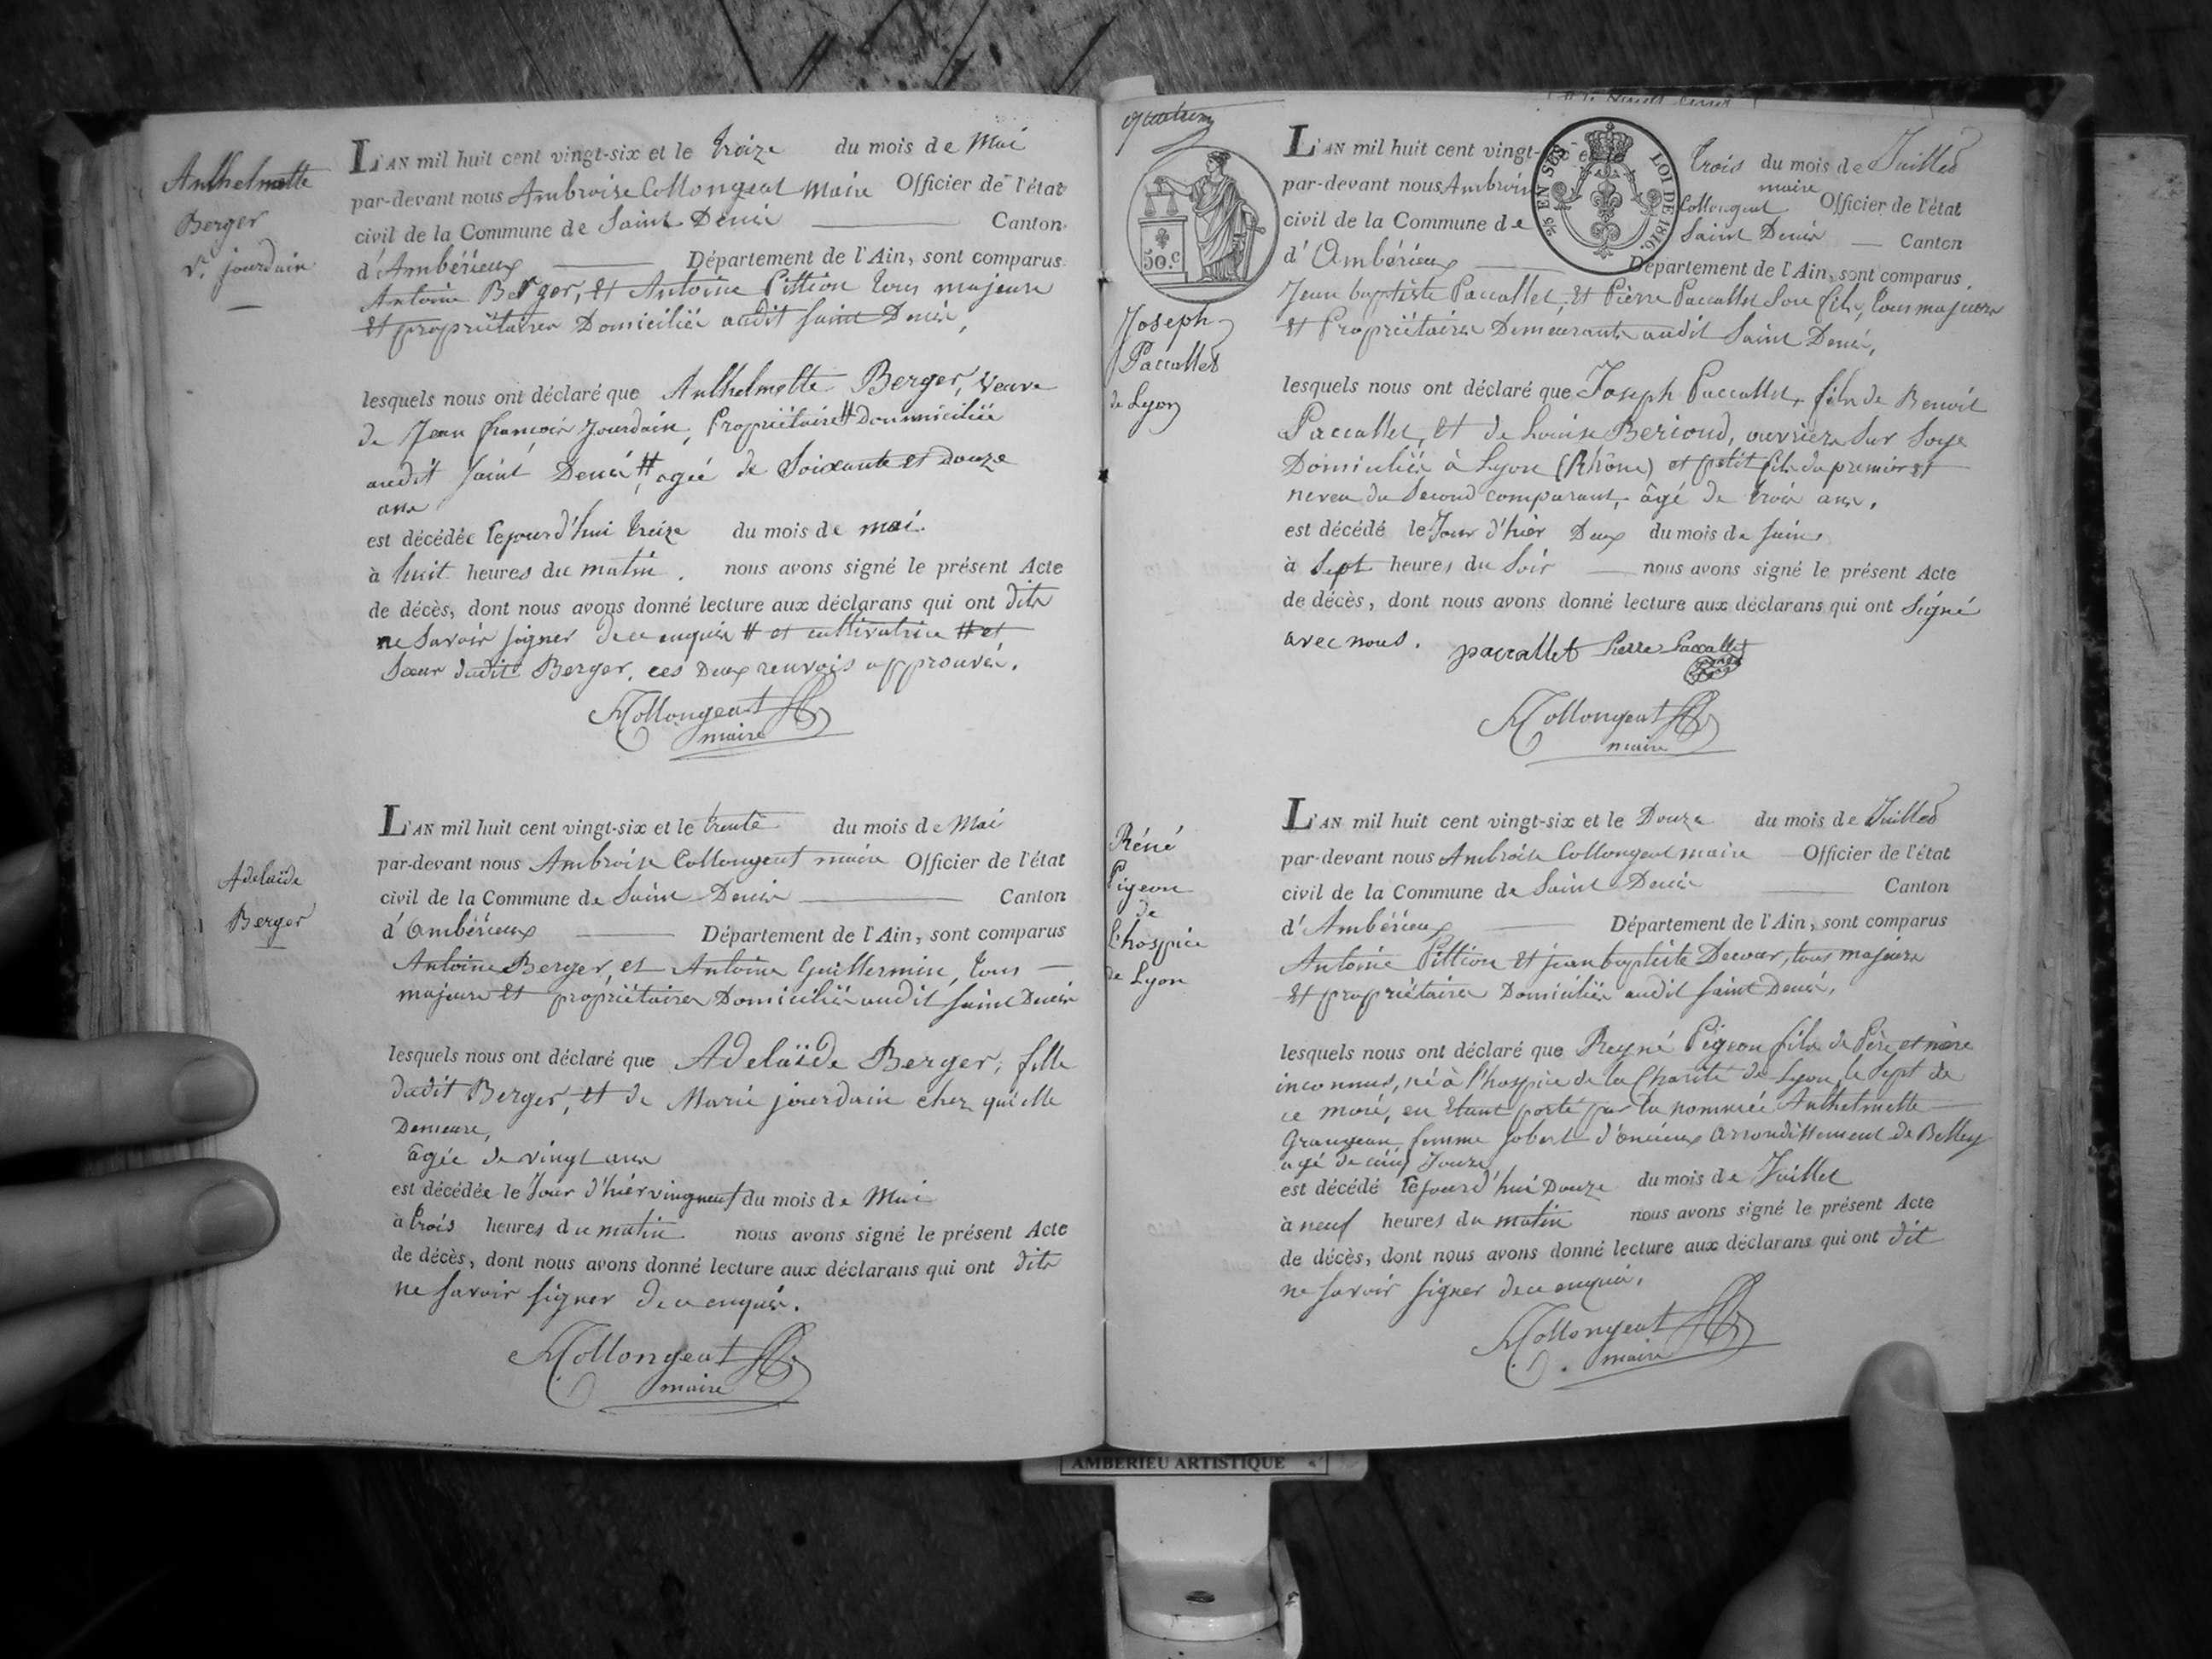 Anthelmette
Berger
Ve. jourdain
L'AN mil huit cent vingt-six et le treize du mois de Mai
par-devant nous Ambroise Collongeat Maire Officier de l'état
civil de la Commune de Saint Denis Canton
d'Ambérieux Département de l'Ain, sont comparus
Antoine Berger, et Antoine Pittion tous majeurs
et propriétaires Domiciliés audit saint Denis,
lesquels nous ont déclaré que Anthelmette Berger, veuve
de Jean françois Jourdain, Propriétaire # Dommiciliée
audit saint Denis # agée de Soixante et Douze
ans
est décédée cejourd'hui treize du mois de mai.
à huit heures du matin. nous avons signé le présent Acte
de décès, dont nous avons donné lecture aux déclarans qui ont dits
ne Savoir signer de ce enquis # et cultivatrice # et
Sœur dudit Berger, ces Deux renvois approuvés.
Collongeat
maire
Adelaïde
Berger
L'AN mil huit cent vingt-six et le trente du mois de Mai
par-devant nous Ambroise Collongeat maire Officier de l'état
civil de la Commune de Saint Denis Canton
d'Ambérieux Département de l'Ain, sont comparus
Antoine Berger, et Antoine Guillermin, tous
majeurs et propriétaires Domiciliés audit saint Denis
lesquels nous ont déclaré que Adelaïde Berger, fille
dudit Berger, et de Marie jourdain chez qui elle
Demeure,
âgée de vingt ans
est décédée le Jour d'hier vingneuf du mois de Mai
à trois heures du matin nous avons signé le présent Acte
de décès, dont nous avons donné lecture aux déclarans qui ont dits
ne savoir signer de ce enquis.
Collongeat
maire
50.c
5c EN SUS LOI DE 1816.
Joseph
Paccallet
de Lyon
L'AN mil huit cent vingt- trois du mois de Juillet
par-devant nous Ambroise Collongeat maire Officier de l'état
civil de la Commune de Saint Denis Canton
d'Ambérieux Département de l'Ain, sont comparus
Jean baptiste Paccallet, et Pierre Paccallet Son fils, tous majeurs
et Propriétaires Demeurants audit Saint Denis,
lesquels nous ont déclaré que Joseph Paccallet, fils de Benoit
Paccallet, et de Louise Berioud, ouvriers Sur Soye
Domiciliés à Lyon (Rhône) et petit fils du premier et
neveu du Second comparant, âgé de trois ans,
est décédé le Jour d'hier Deux du mois de juin,
à Sept heures du Soir nous avons signé le présent Acte
de décès, dont nous avons donné lecture aux déclarans qui ont Signé
avec nous. paccallet Pierre Paccallet
Collongeat
maire
Réné
Pigeon
de
L'hospice
de Lyon
L'AN mil huit cent vingt-six et le Douze du mois de Juillet
par-devant nous Ambroise Collongeat maire Officier de l'état
civil de la Commune de Saint Denis Canton
d'Ambérieux Département de l'Ain, sont comparus
Antoine Pittion et jean baptiste tous majeurs
et propriétaires Domiciliés audit saint Denis,
lesquels nous ont déclaré que Reyné Pigeon fils de Père et mère
inconnus, né à l'hospice de la Charité de Lyon, le Sept de
ce mois, en étant porté par la nommée Anthelmette
femme Jobert arrondissement de Belley
agé de cinq Jours
est décédé cejourd'hui Douze du mois de Juillet
à neuf heures du matin nous avons signé le présent Acte
de décès, dont nous avons donné lecture aux déclarans qui ont dit
ne savoir signer de ce enquis,
Collongeat
maire
AMBERIEU ARTISTIQUE